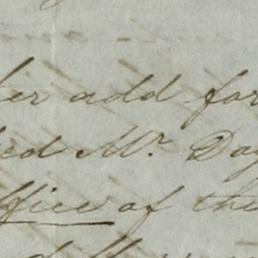 her add for
ed Mr. Day
ffice of the